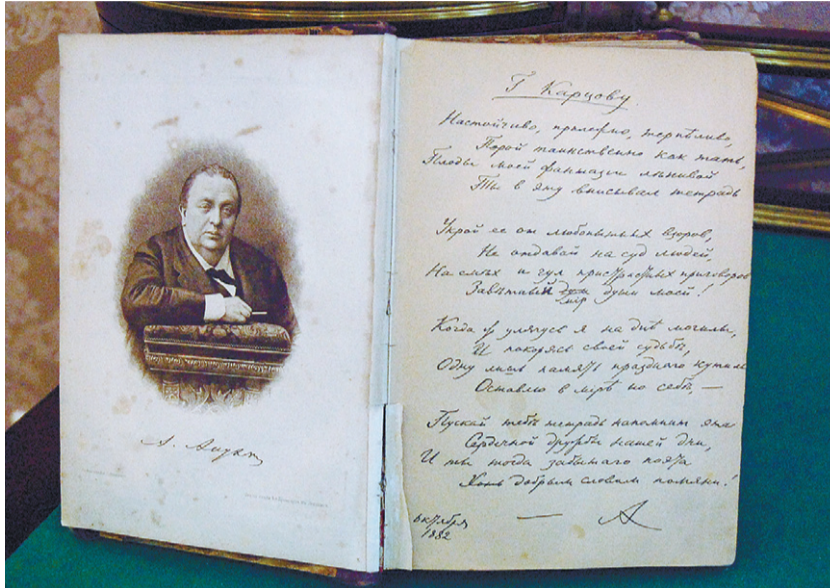 А. Апухтин
Г. Карцову
Настойчиво, прилежно, терпѣливо,
Порой таинственно как тать,
Плоды моей фантазии лѣнивой
Ты в эту вписывал тетрадь
Укрой ее от любопытных взоров,
Не отдавай на суд людей,
На смѣх и гул пристрастных приговоров
Завѣтный мір души моей!
Когда ж улягусь я на днѣ могилы,
И покорясь своей судьбѣ,
Одну лишь память праздного кутилы
Оставлю в мірѣ по себѣ, —
Пускай тебѣ тетрадь напомнит эта
Сердечной дружбы нашей дни,
И ты тогда забытаго поэта
Хоть добрым словом помяни!
октября
1882
— А